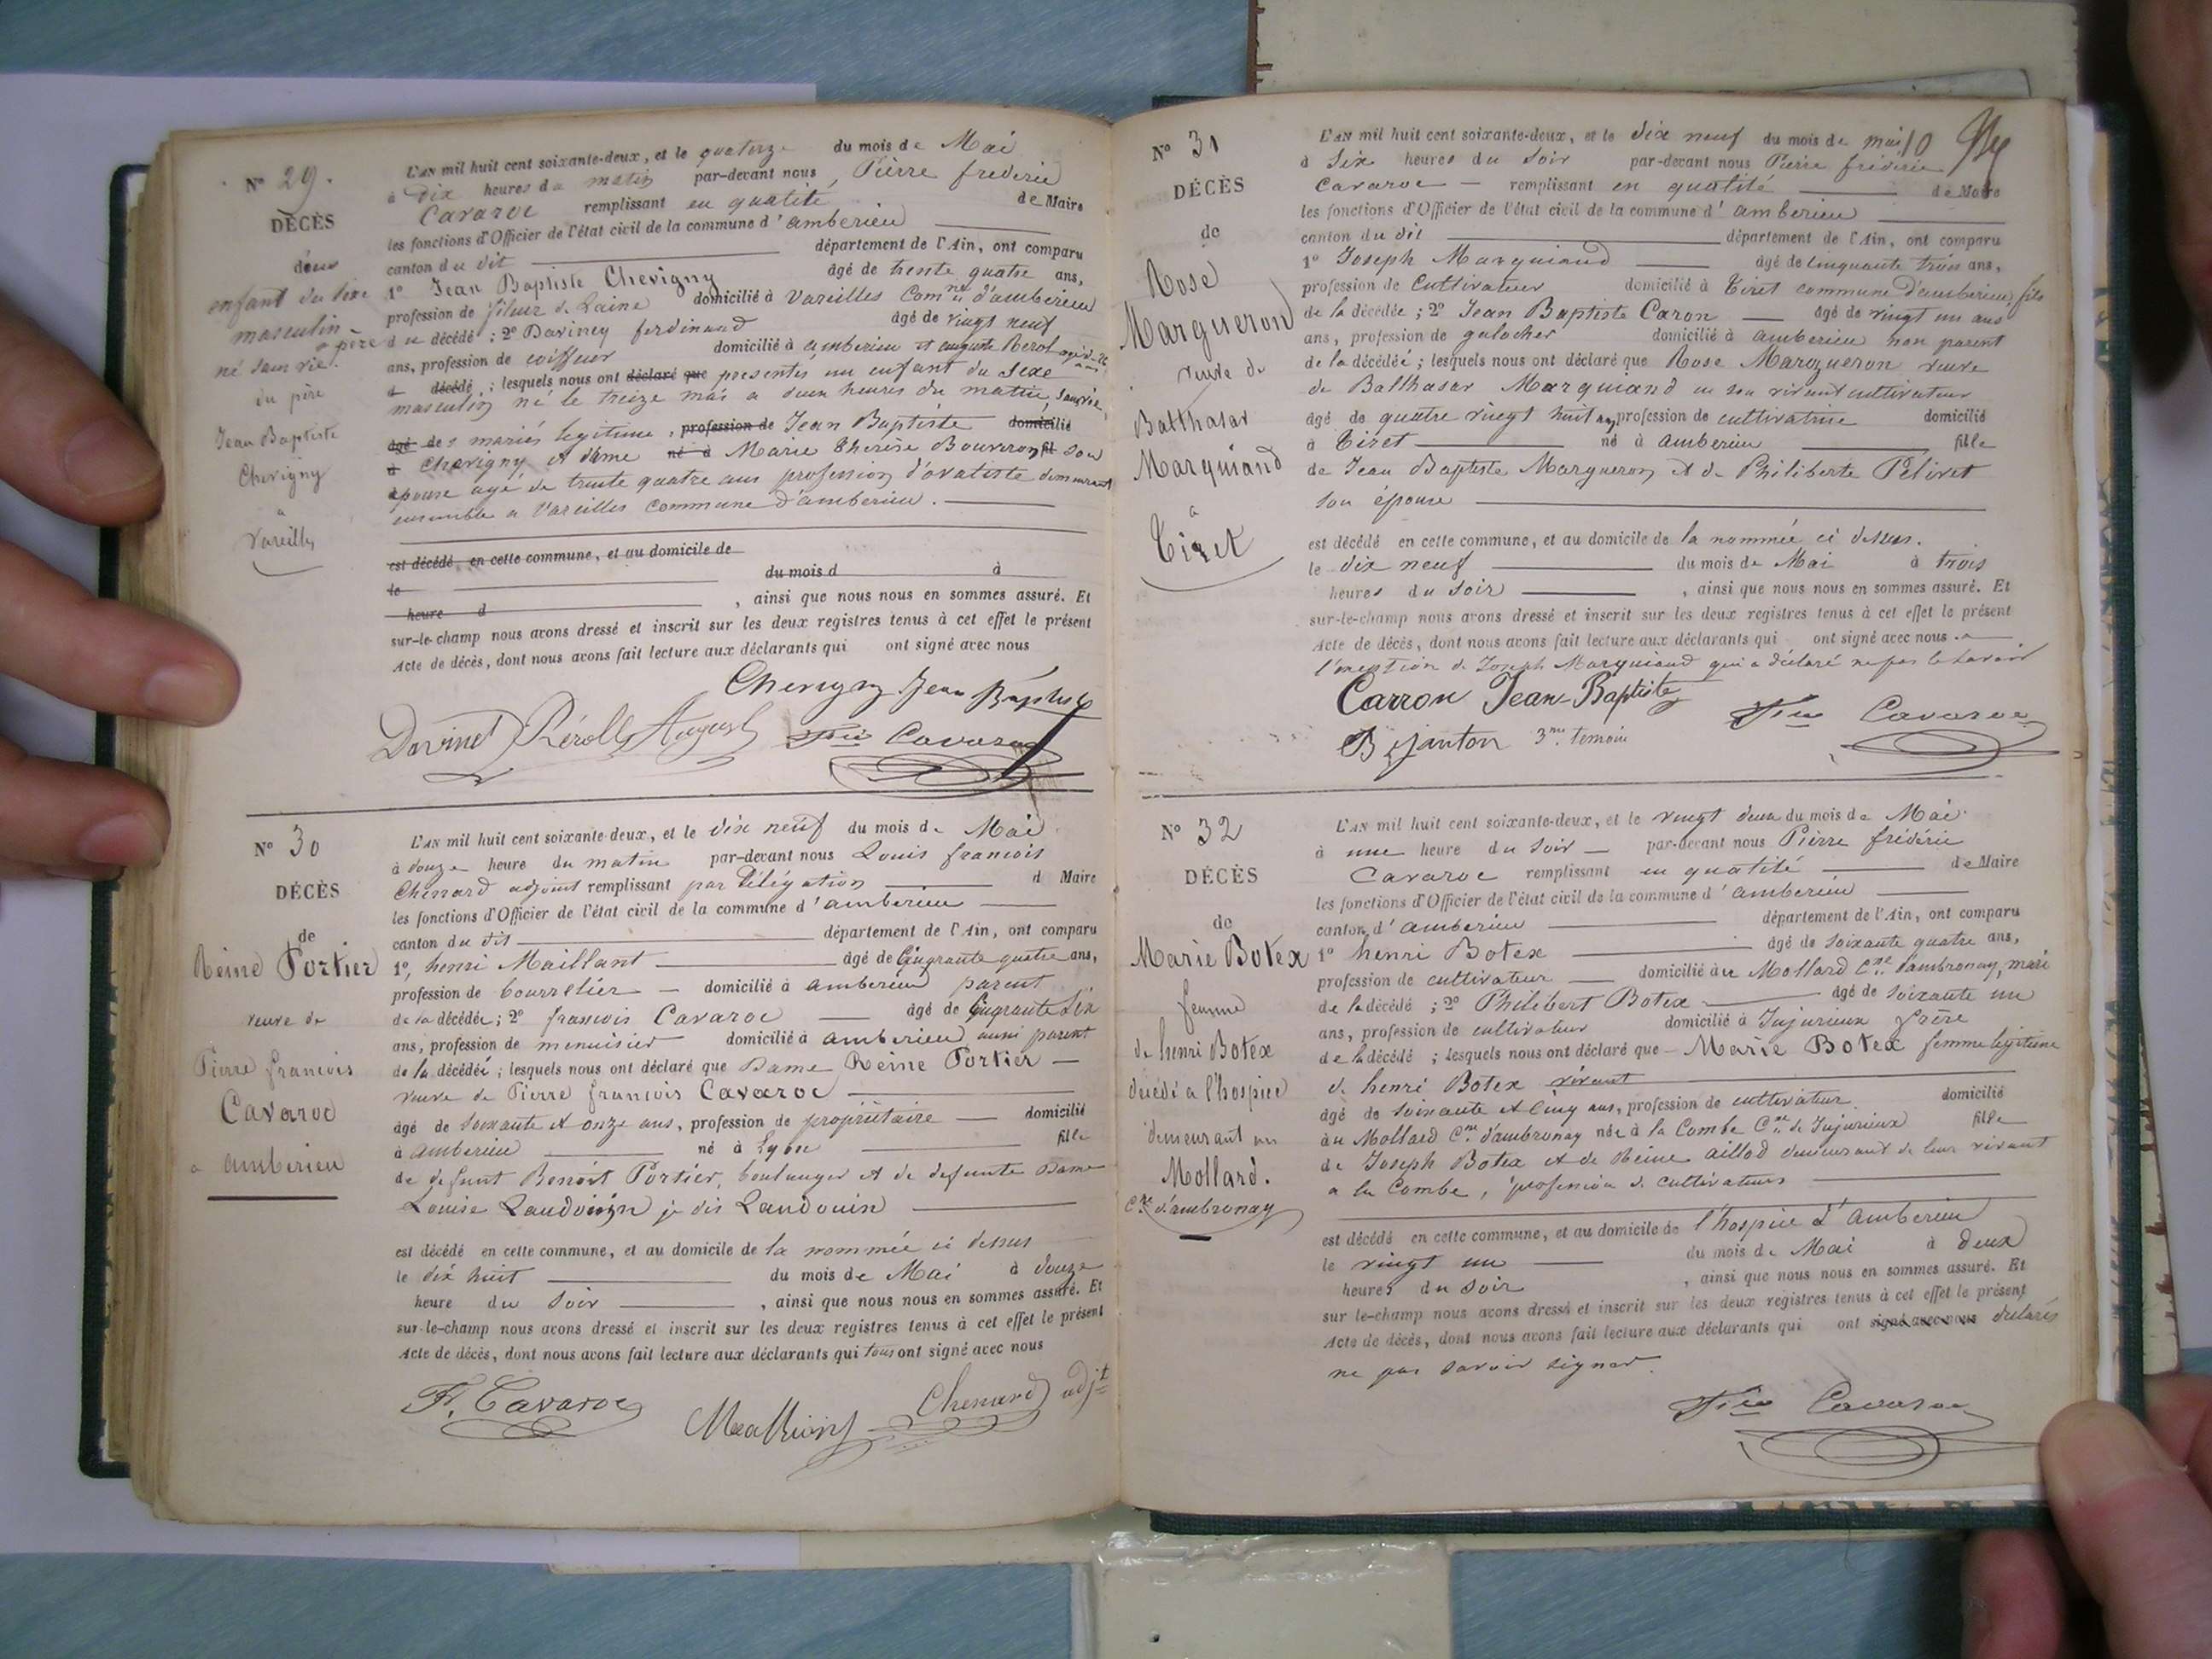 N° 29.
DÉCÈS
enfant du sexe
masculin
né sans vie.
du père
Jean Baptiste
Chevigny
a
Vareilles
L'AN mil huit cent soixante-deux, et le quatorze du mois de Mai
à Dix heures du matin par-devant nous, Pierre frederic
Cavaroc remplissant en qualité de Maire
les fonctions d'Officier de l'état civil de la commune d'amberieu
canton du dit département de l'Ain, ont comparu
1° Jean Baptiste Chevigny âgé de trente quatre ans,
profession de fileur de Laine domicilié à Vareilles Comne d'amberieu
père du décédé ; 2° Daviney ferdinand âgé de vingt neuf
ans, profession de coiffeur domicilié à amberieu et auguste Rerol
d décédé ; lesquels nous ont déclaré que presentés un enfant du Sexe
masculin né le treize mai a deux heures du matin, Sans vie,
âgé des mariés legitime, profession de Jean Baptiste domicilié
à Chevigny et dame né à Marie Therèse Bouveron fil son
épouse agé de trente quatre ans profession d'ovaliste demeurant
ensemble a Vareilles Commune d'amberieu.
est décédé en cette commune, et au domicile de
le du mois d à
heure d , ainsi que nous nous en sommes assuré. Et
sur-le-champ nous avons dressé et inscrit sur les deux registres tenus à cet effet le présent
Acte de décès, dont nous avons fait lecture aux déclarants qui ont signé avec nous
Chevigny Jean Baptiste
Davinet Rérolle August Fric Cavaroc
N° 30
DÉCÈS
de
Reine Portier
veuve de
Pierre francois
Cavaroc
a amberieu
L'AN mil huit cent soixante-deux, et le dix neuf du mois de Mai
à douze heure du matin par-devant nous Louis francois
Chenard adjoint remplissant par Délégation d Maire
les fonctions d'Officier de l'état civil de la commune d'amberieu
canton du dit département de l'Ain, ont comparu
1°, henri Maillant âgé de Cinquante quatre ans,
profession de bourrelier domicilié à amberieu parent
de la décédée ; 2° francois Cavaroc âgé de Cinquante Six
ans, profession de menuisier domicilié à amberieu aussi parent
de la décédée ; lesquels nous ont déclaré que Dame Reine Portier
veuve de Pierre francois Cavaroc
âgé de soixante et onze ans, profession de propriétaire domicilié
à amberieu né à Lyon fille
de defunt Benoit Portier, boulanger et de defunte Dame
Louise Laudvoin je dis Laudouin
est décédé en cette commune, et au domicile de la nommée ci dessus
le dix huit du mois de Mai à douze
heure du soir , ainsi que nous nous en sommes assuré. Et
sur-le-champ nous avons dressé et inscrit sur les deux registres tenus à cet effet le présent
Acte de décès, dont nous avons fait lecture aux déclarants qui tous ont signé avec nous
F. Cavaroc Chenard adjt
N° 31
DÉCÈS
de
Rose
Margueron
veuve de
Balthasar
Marquiand
a
Tiret
L'AN mil huit cent soixante-deux, et le dix neuf du mois de mai
à Six heures du soir par-devant nous Pierre fréderic
Cavaroc remplissant en qualité de Maire
les fonctions d'Officier de l'état civil de la commune d'amberieu
canton du dit département de l'Ain, ont comparu
1° Joseph Marquiand âgé de Cinquante trois ans,
profession de Cultivateur domicilié à Tiret commune d'amberieu, fils
de la décédée ; 2° Jean Baptiste Caron âgé de vingt un ans
ans, profession de galocher domicilié à amberieu non parent
de la décédée ; lesquels nous ont déclaré que Rose Margueron veuve
de Balthasar Marquiand en son vivant cultivateur
âgé de quatre vingt huit ans, profession de cultivatrice domicilié
à Tiret né à amberieu fille
de Jean Baptiste Margueron et de Philiberte Pelivet
son épouse
est décédé en cette commune, et au domicile de la nommée ci dessus.
le dix neuf du mois de Mai à trois
heures du soir , ainsi que nous nous en sommes assuré. Et
sur-le-champ nous avons dressé et inscrit sur les deux registres tenus à cet effet le présent
Acte de décès, dont nous avons fait lecture aux déclarants qui ont signé avec nous. a
l'exception de Joseph Marquiand qui a déclaré ne pas le savoir
Carron Jean-Baptiste Fric Cavaroc
Bejanton 3me temoin
N° 32
DÉCÈS
de
Marie Botex
femme
de henri Botex
décédé a l'hospice
demeurant au
Mollard.
Cne d'ambronay
L'AN mil huit cent soixante-deux, et le vingt deux du mois de Mai
à une heure du soir par-devant nous Pierre fréderic
Cavaroc remplissant en qualité de Maire
les fonctions d'Officier de l'état civil de la commune d'amberieu
canton d'amberieu département de l'Ain, ont comparu
1° henri Botex âgé de soixante quatre ans,
profession de cultivateur domicilié à au Mollard Cne d'ambronay, mari
de la décédé ; 2° Philibert Botex âgé de soixante un
ans, profession de cultivateur domicilié à Jujurieux frère
de la décédé ; lesquels nous ont déclaré que Marie Botex femme légitime
de henri Botex vivant
âgé de soixante et cinq ans, profession de cultivateur domicilié
au Mollard Cne d'ambronay née à la Combe Cne de Jujurieux fille
de Joseph Botex et de Reine aillod demeurant de leur vivant
a la Combe, profession de cultivateurs
est décédé en cette commune, et au domicile de l'hospice d'Amberieu
le vingt un du mois de Mai à deux
heures du soir , ainsi que nous nous en sommes assuré. Et
sur le-champ nous avons dressé et inscrit sur les deux registres tenus à cet effet le présent
Acte de décès, dont nous avons fait lecture aux déclarants qui ont signé avec nous déclarés
ne pas savoir signer.
Fric Cavaroc